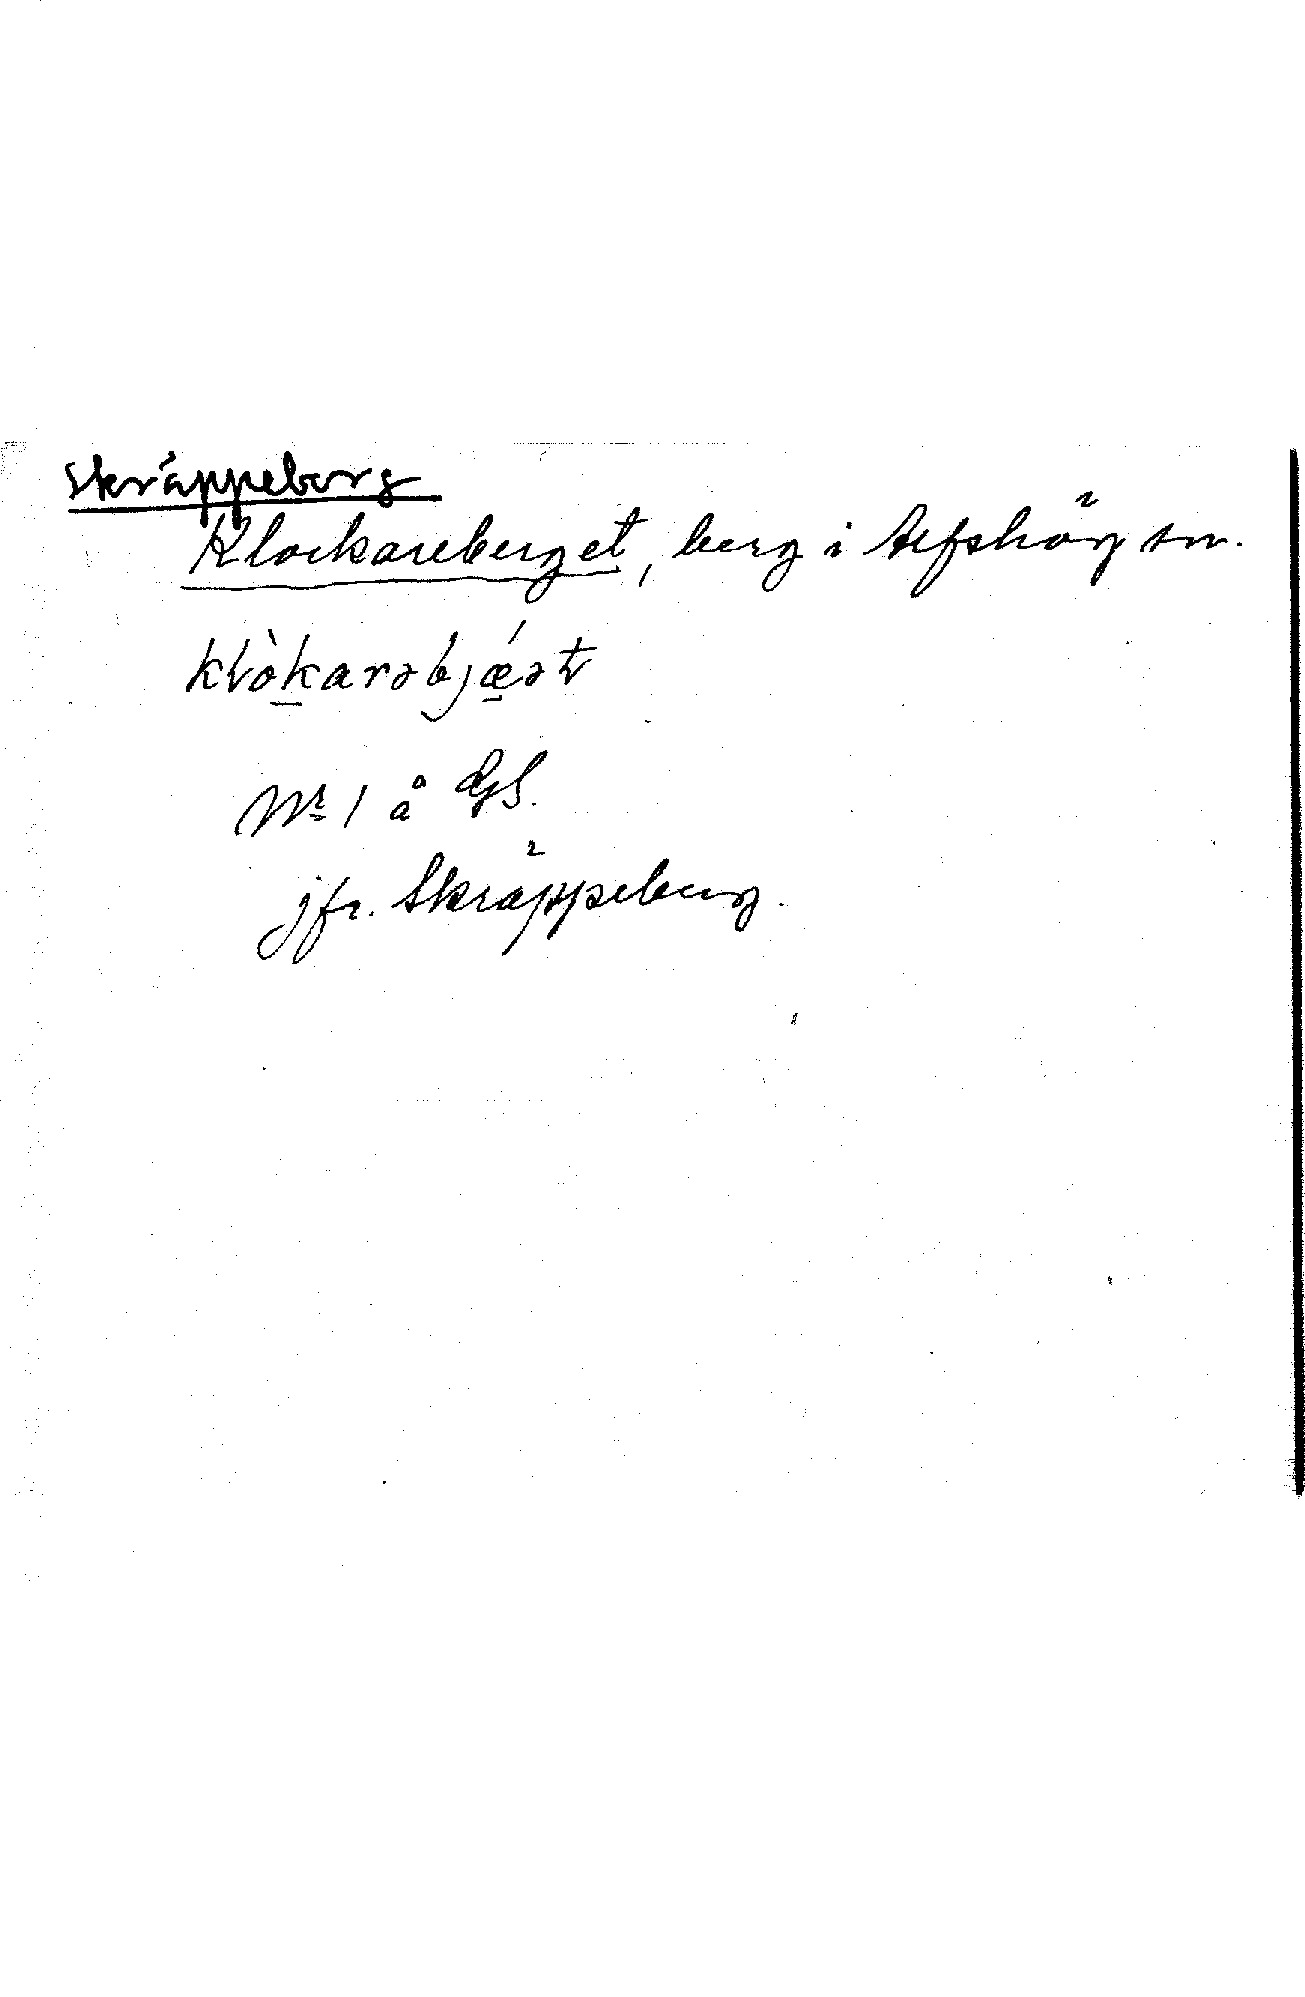 Skräppeborg
Klockareberget, berg i Avfshög sn.
klòkarəbjǽət
Nr 1 å
jfr. Skräppeberg.